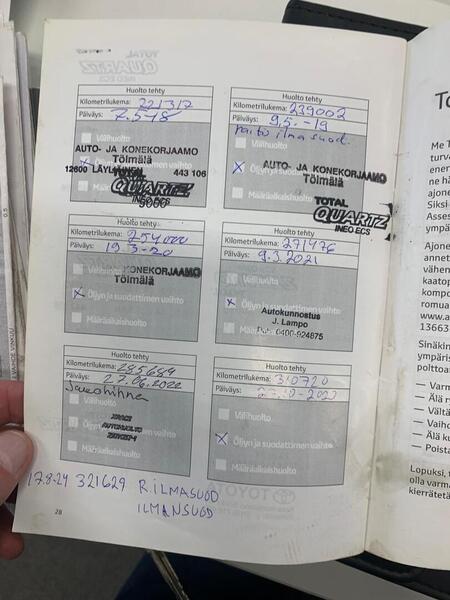 Huolto tehty
Kilometrilukema: 221317
Päiväys: 7.5-18
Välihuolto
Öljyn ja suodattimen vaihto
AUTO- JA KONEKORJAAMO
Tölmälä
12600 LÄYLIÄINEN 443 106
TOTAL
QUARTZ
Huolto tehty
Kilometrilukema: 239002
Päiväys: 9.5.-19
Välihuolto
Öljyn ja suodattimen vaihto
AUTO- JA KONEKORJAAMO
Tölmälä
Määräaikaishuolto
TOTAL
QUARTZ
INEO ECS
Huolto tehty
Kilometrilukema: 254000
Päiväys: 19.3-20
Välihuolto
KONEKORJAAMO
Tölmälä
Öljyn ja suodattimen vaihto
Määräaikaishuolto
Huolto tehty
Kilometrilukema: 271476
Päiväys: 9.3.2021
Välihuolto
Öljyn ja suodattimen vaihto
Autokunnostus
J. Lampo
Puh. 0400-924875
Huolto tehty
Kilometrilukema: 285689
Päiväys: 27.06.2022
Välihuolto
Öljyn ja suodattimen vaihto
Määräaikaishuolto
Huolto tehty
Kilometrilukema: 310720
Päiväys:
Välihuolto
Öljyn ja suodattimen vaihto
Määräaikaishuolto
17.8-24 321629 R.ILMASUOD
ILMANSUOD
28
Me T
turva
ene h
ajone
Siksi
Asses
ympä
Ajone
annet
vähen
kaatop
kompo
romua
www.a
13663
Sinäkin
ympäris
polttoai
— Varm
— Älä r
— Vältä
— Vaiho
— Älä ku
— Poista
Lopuksi, t
olla varma
kierrätetä